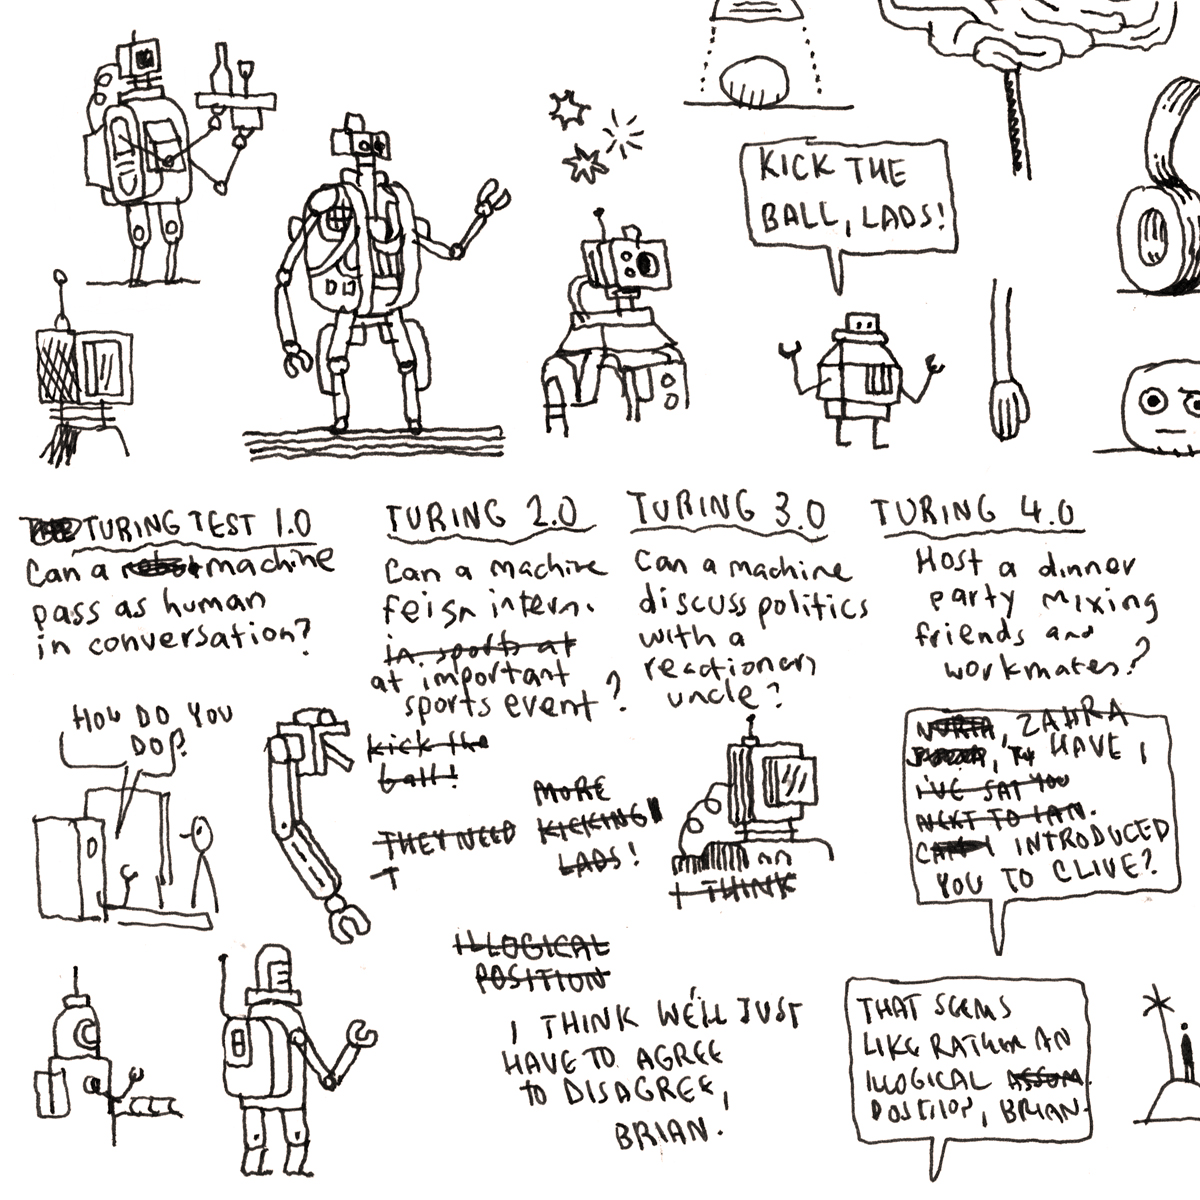 KICK THE
BALL, LADS!
TURING TEST 1.0
Can a robot machine
pass as human
in conversation?
TURING 2.0
Can a machine
feign intern.
in sports at
at important
sports event?
kick the
ball!
TURING 3.0
Can a machine
discuss politics
with a
reactionary
uncle?
TURING 4.0
Host a dinner
party mixing
friends and
workmates?
HOW DO YOU
DO?
MORE
THEY NEED KICKING
LADS!
I THINK
ILLOGICAL
POSITION
I THINK WE'LL JUST
HAVE TO AGREE
TO DISAGREE,
BRIAN.
ZAHRA
HAVE I
I'VE SAT YOU
NEXT TO IAN.
INTRODUCED
YOU TO CLIVE?
THAT SEEMS
LIKE RATHER AN
ILLOGICAL
POSITION, BRIAN.